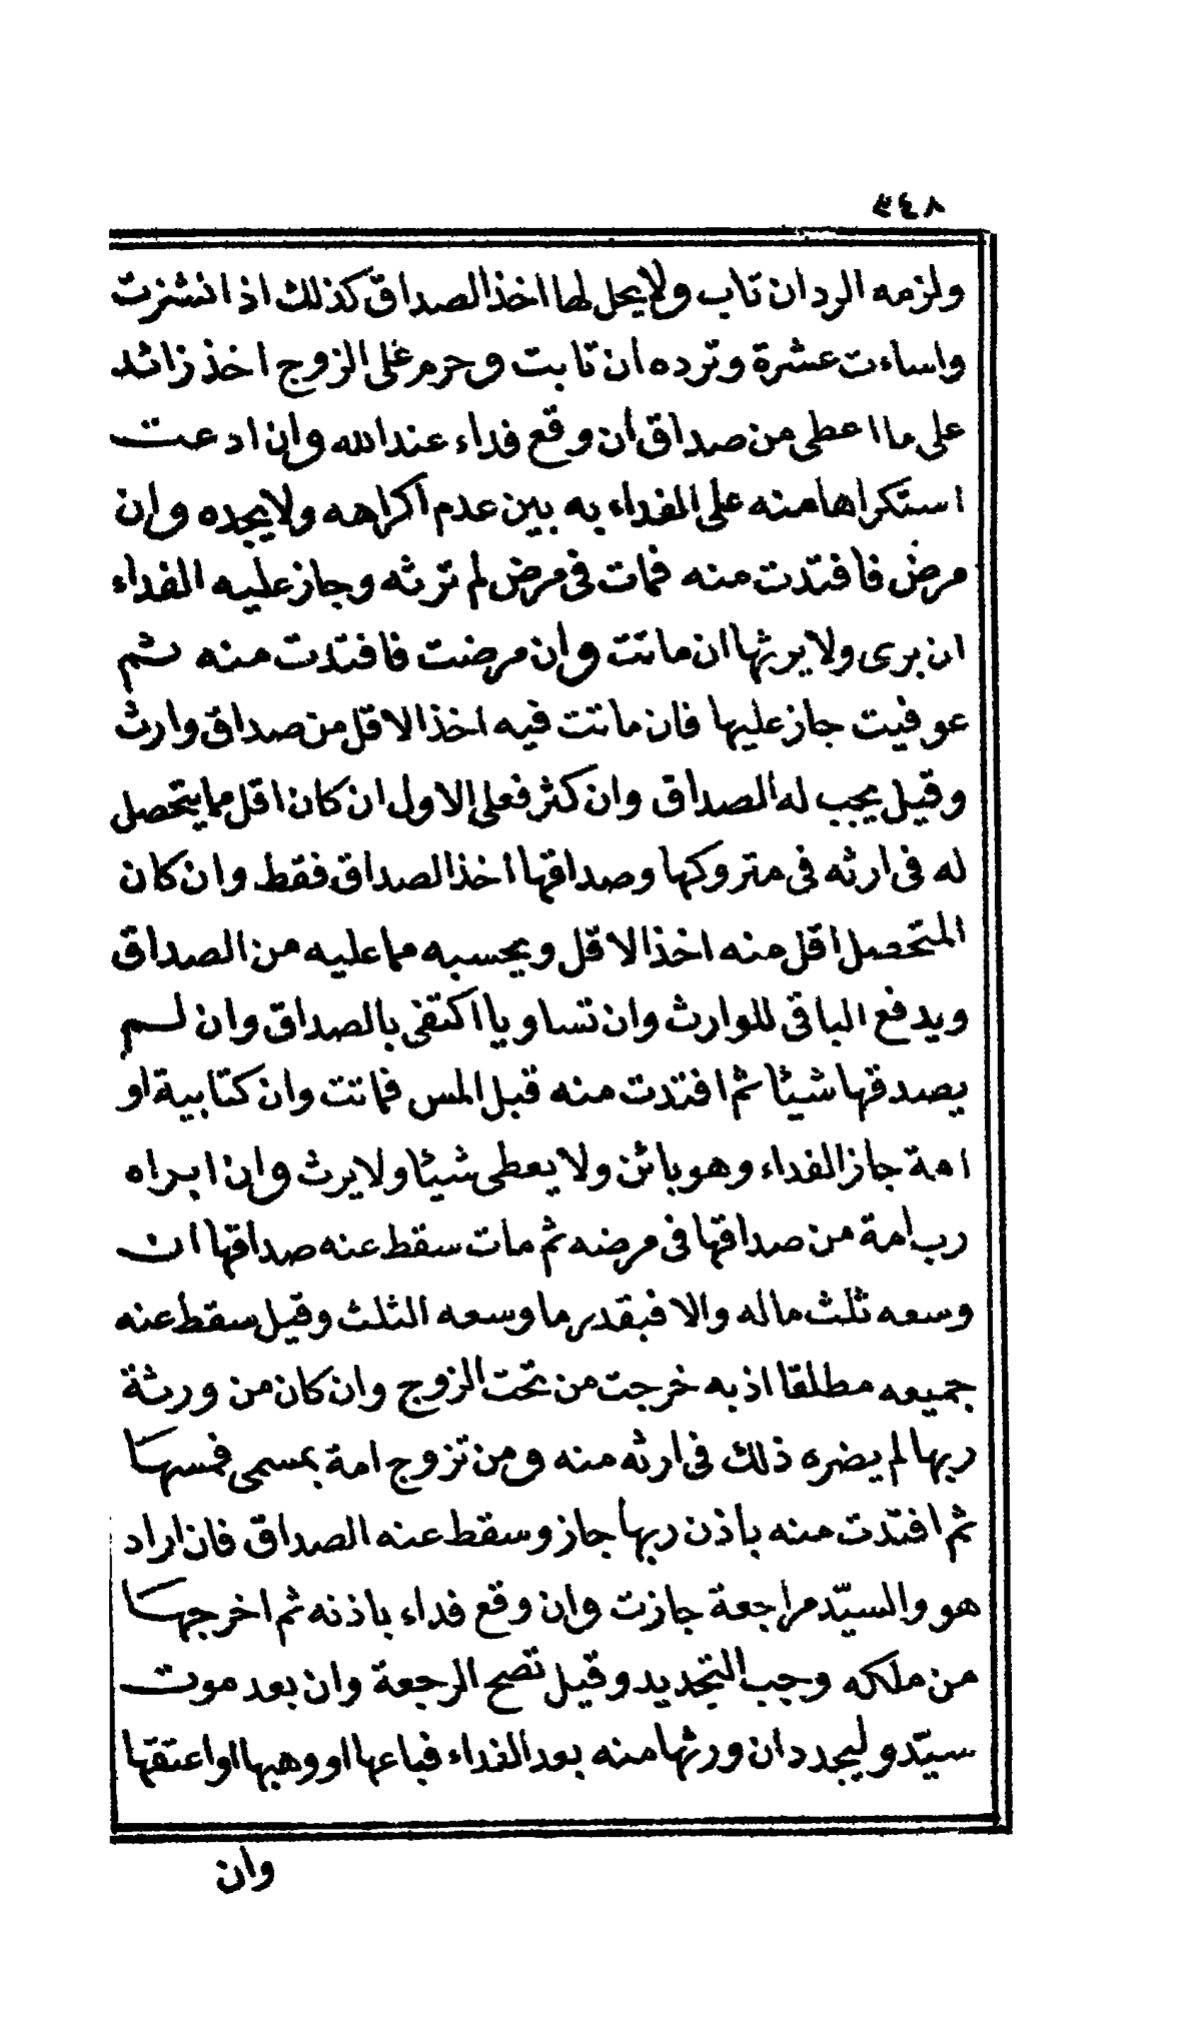 ٣٤٨
ولزمه الرد ان تاب ولم يحل لها اخذ الصداق كذلك اذا نشزت
واساءت عشرة وترده ان تابت وحرم على الزوج اخذ زائد
على ما اعطى من صداق ان وقع فداء عند الله وان ادعت
استكراها منه على الفداء به بين عدم اكراهه ولا يجده وان
مرض فافتدت منه فمات فى مرض لم ترثه وجاز عليه الفداء
ان برى ولا يرثها ان ماتت وان مرضت فافتدت منه ثم
عوفيت جاز عليها فان ماتت فيه اخذ الاقل من صداق وارث
وقيل يجب له الصداق وان كثر فعلى الاول ان كان اقل مما يتحصل
له فى ارثه فى متروكها وصداقها اخذ الصداق فقط وان كان
المتحصل اقل منه اخذ الاقل ويحسبه مما عليه من الصداق
ويدفع الباقى للوارث وان تساويا اكتفى بالصداق وان لم
يصدقها شيئا ثم افتدت منه قبل المس فماتت وان كتابية او
امة جاز الفداء وهو بائن ولا يعطى شيئا ولا يرث وان ابراه
رب امة من صداقها فى مرضه ثم مات سقط عنه صداقها ان
وسعه ثلث ماله والا فبقدر ما وسعه الثلث وقيل سقط عنه
جميعه مطلقا اذ به خرجت من تحت الزوج وان كان من ورثة
ربها لم يضره ذلك فى ارثه منه ومن تزوج امة بمسمى فمسها
ثم افتدت منه باذن ربها جاز وسقط عنه الصداق فان اراد
هو والسيّد مراجعة جازت وان وقع فداء باذنه ثم اخرجها
من ملكه وجب التجديد وقيل تصح الرجعة وان بعد موت
سيّد وليجدد ان ورثها منه بعد الفداء فباعها او وهبها او اعتقها
وان